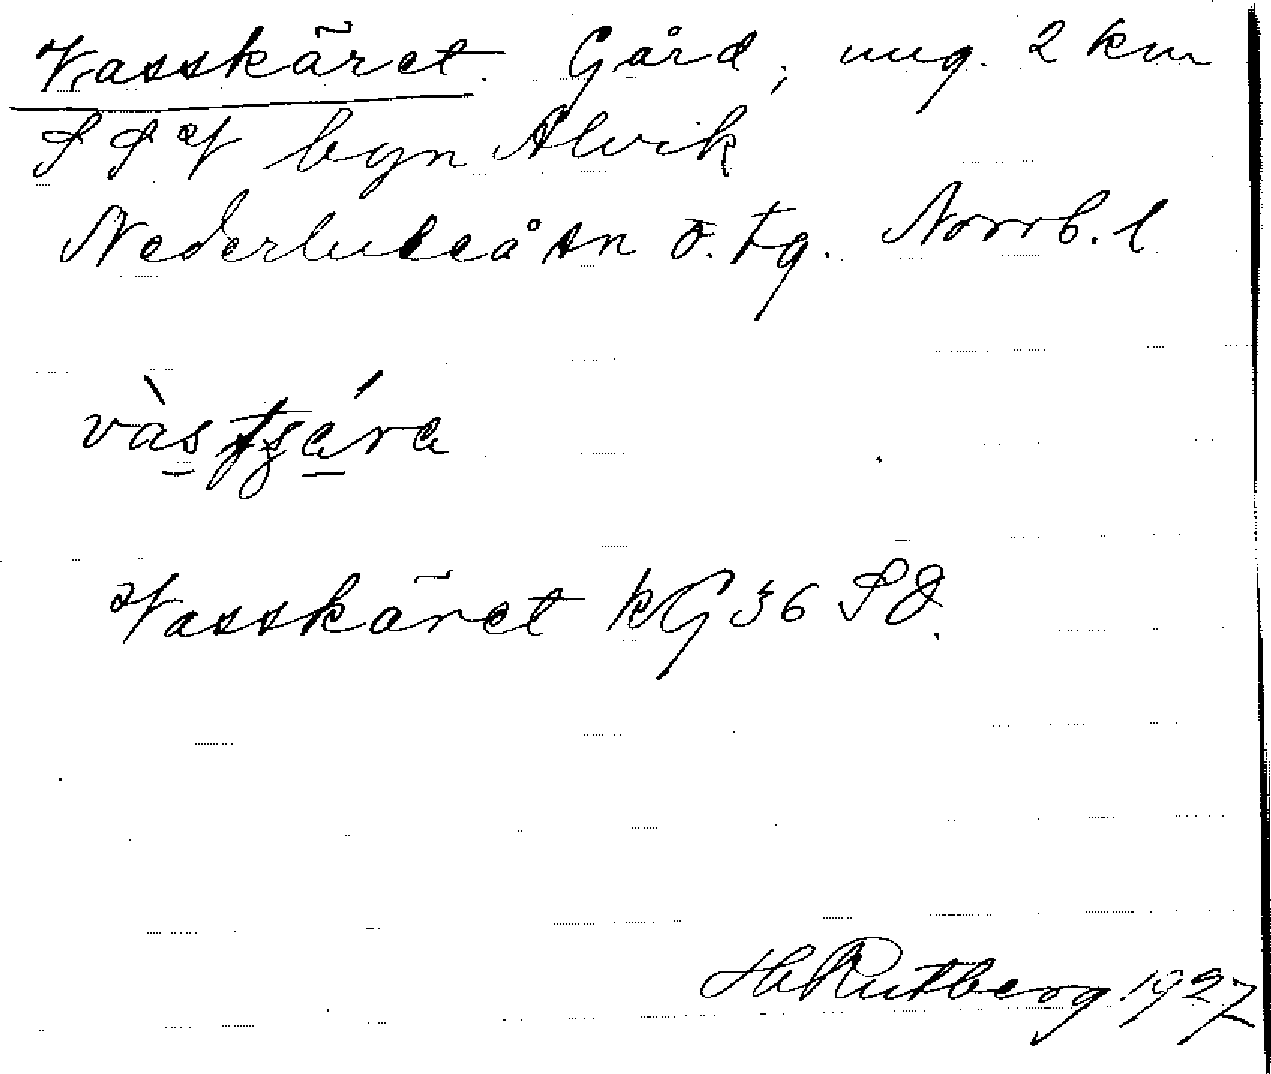 Vasskäret. Gård, ung. 2 km
SSV byn Alvik
Nederluleå sn ö. tg. Norrb. l
Vasskäret kG 36 SO.
H Rutberg 1927